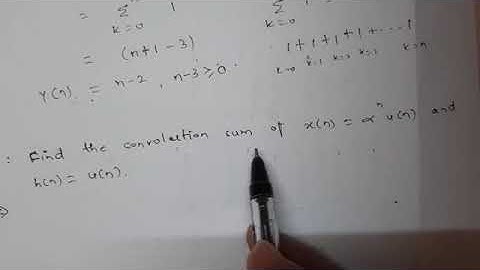 = Σ 1
k=0
Σ
k=0
= (n+1-3)
1+1+1+1+....1
k=0 k=1 k=2 k=3 k=n
y(n) = n-2 , n-3≥0.
: Find the convolution sum of x(n) = αⁿ u(n) and
h(n) = u(n).
⇒